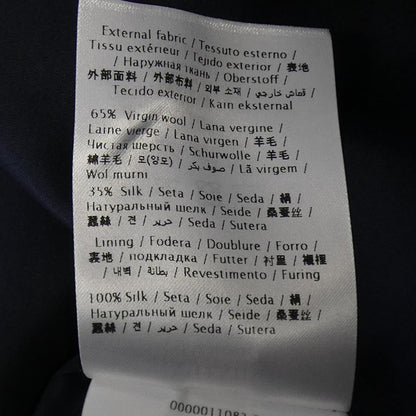 External fabric / Tessuto esterno /
Tissu extérieur / Tejido exterior / 表地
/ Наружная ткань / Oberstoff /
外部面料 / 外部布料 / 외부 소재 / قماش خارجي /
Tecido exterior / Kain eksternal
65% Virgin wool / Lana vergine /
Laine vierge / Lana virgen / 羊毛 /
Чистая шерсть / Schurwolle / 羊毛 /
綿羊毛 / 모(양모) / صوف بكر / Lã virgem /
Wol murni
35% Silk / Seta / Soie / Seda / 絹 /
Натуральный шелк / Seide / 桑蚕丝 /
蠶絲 / 견 / حرير / Seda / Sutera
Lining / Fodera / Doublure / Forro /
裏地 / подкладка / Futter / 衬里 / 襯裡
/ 내벽 / بطانة / Revestimento / Furing /
100% Silk / Seta / Soie / Seda / 絹 /
Натуральный шелк / Seide / 桑蚕丝 /
蠶絲 / 견 / حرير / Seda / Sutera